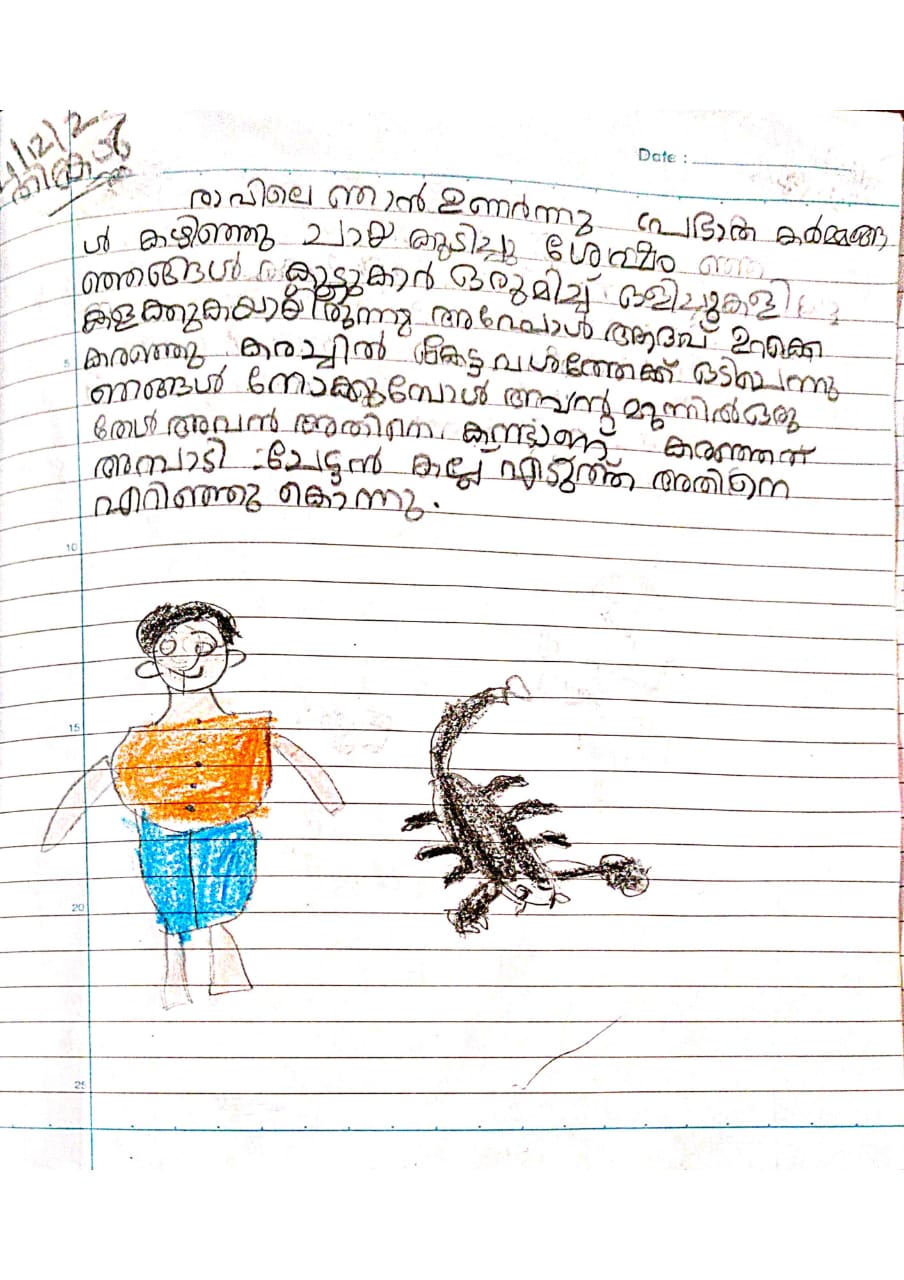 Date :
തിങ്കൾ
രാവിലെ ഞാൻ ഉണർന്നു പ്രഭാത കർമ്മങ്ങ
ൾ കഴിഞ്ഞു ചായ കുടിച്ചു ശേഷം
ഞങ്ങൾ കൂട്ടുകാർ ഒരുമിച്ച് ഒളിച്ചുകളി
കളക്കുകയായിരുന്നു അപ്പോൾ ആദവ് ഉറക്കെ
5
കരഞ്ഞു കരച്ചിൽ കേട്ട വശത്തേക്ക് ഓടിചെന്നു
ഞങ്ങൾ നോക്കുമ്പോൾ അവന്റെ മുന്നിൽ ഒരു
തേൾ അവൻ അതിനെ കണ്ടാണ് കരഞ്ഞത്
അമ്പാടി ചേട്ടൻ കല്ല് എടുത്ത് അതിനെ
എറിഞ്ഞു കൊന്നു.
10
15
20
25